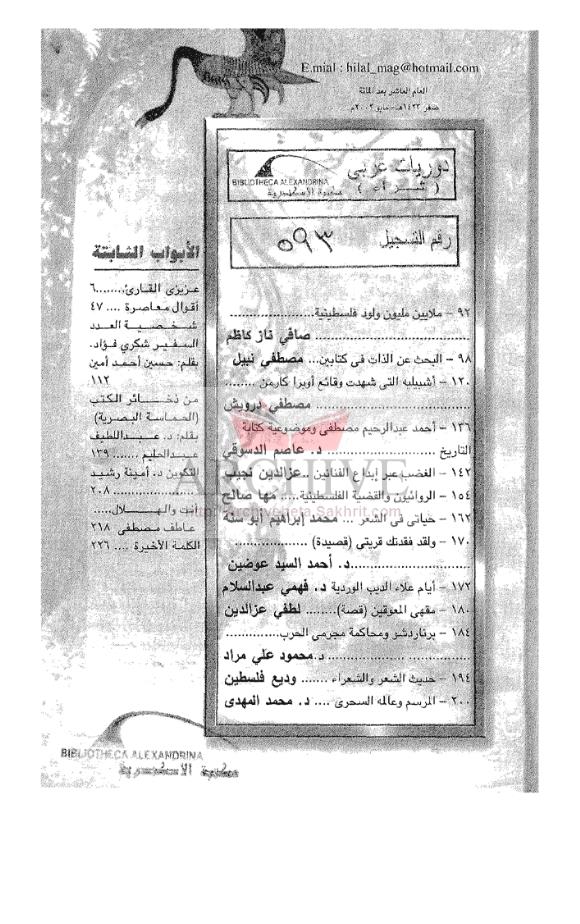 E.mial : hilal_mag@hotmail.com
العام العاشر بعد المائة
صفر ١٤٢٣هـ - مايو ٢٠٠٢م
دوريات عربى
( شراء )
BIBLIOTHECA ALEXANDRINA
مكتبة الإسكندرية
رقم التسجيل ٥٩٣
٩٢ - ملايين مليون ولود فلسطينية.....................
..................................... صافي ناز كاظم
٩٨ - البحث عن الذات فى كتابين... مصطفى نبيل
١٣٠ - أشبيليه التى شهدت وقائع أوبرا كارمن ........
..................................... مصطفى درويش
١٣٦ - أحمد عبدالرحيم مصطفى وموضوعية كتابة
التاريخ .................... د. عاصم الدسوقي
١٤٢ - الغضب عبر إبداع الفنانين ..عزالدين نجيب
١٥٤ - الروائيون والقضية الفلسطينية..... مها صالح
١٦٢ - حياتى فى الشعر ... محمد إبراهيم أبو سنة
١٧٠ - ولقد فقدتك قريتى (قصيدة) ..................
.............................د. أحمد السيد عوضين
١٧٢ - أيام علاء الديب الوردية د. فهمي عبدالسلام
١٨٠ - مقهى المعوقين (قصة)........ لطفي عزالدين
١٨٤ - برناردشو ومحاكمة مجرمى الحرب..............
................................ د.محمود علي مراد
١٩٤ - حديث الشعر والشعراء ....... وديع فلسطين
٢٠٠ - المرسم وعالمه السحرى .... د. محمد المهدى
الأبواب الثابتة
عزيزى القارئ:.......٦
أقوال معاصرة .... ٤٧
شخصية العدد
السفير شكري فؤاد.
بقلم: حسين أحمد أمين
١١٢
من ذخائر الكتب
(الحماسة البصرية)
بقلم: د. عبداللطيف
عبدالحليم ....... ١٣٩
التكوين د. أمينة رشيد
................... ٢٠٨
أنت والهلال.....
عاطف مصطفى ٢١٨
الكلمة الأخيرة .... ٢٢٦
ARCHIVE
http://Archivebeta.Sakhrit.com
BIBLIOTHECA ALEXANDRINA
مكتبة الإسكندرية